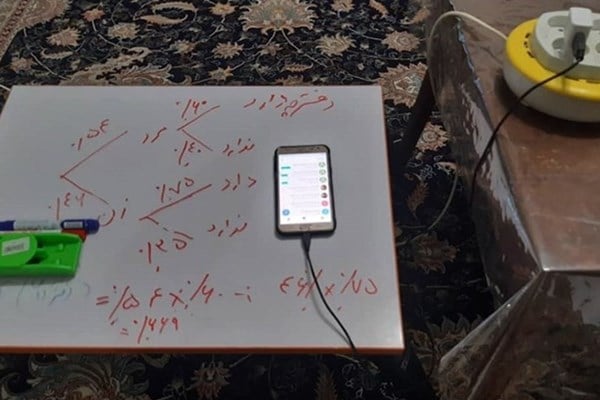 ۰/۶۰ دفترچه دارد
۰/۵۴ مرد
۰/۴۰ ندارد
۰/۷۵ دارد
۰/۴۶ زن
۰/۲۵ ندارد
= ۰/۵۴ × ۰/۶۰ + ۰/۴۶ × ۰/۷۵
= ۰/۶۶۹